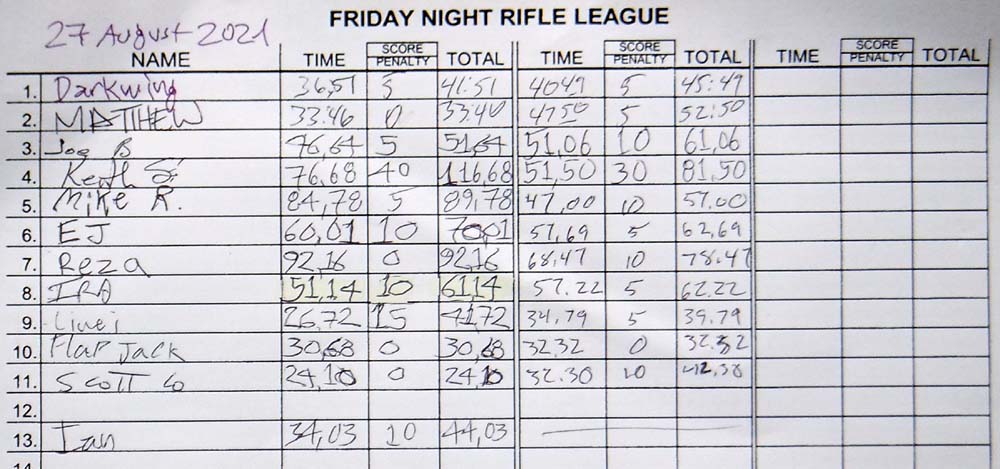 FRIDAY NIGHT RIFLE LEAGUE
27 August 2021
NAME TIME SCORE PENALTY TOTAL TIME SCORE PENALTY TOTAL TIME SCORE PENALTY TOTAL
1. Darkwing 36,51 5 41.51 4049 5 45.49
2. MATTHEW 33.46 0 33.40 47.50 5 52.50
3. Joe B 46,64 5 51,64 51,06 10 61,06
4. Keith 76,68 40 116,68 51,50 30 81,50
5. Mike R. 84,78 5 89,78 47,00 10 57.00
6. EJ 60,01 10 7001 57,69 5 62,69
7. Reza 92,16 0 92,16 68,47 10 78.47
8. IRA 51,14 10 61,14 57.22 5 62.22
9. 26,72 15 4172 34,79 5 39.79
10. Flap Jack 30,68 0 30,68 32.32 0 32.32
11. Scott Co 24,10 0 24,10 32.30 10
12.
13. Ian 34,03 10 44,03